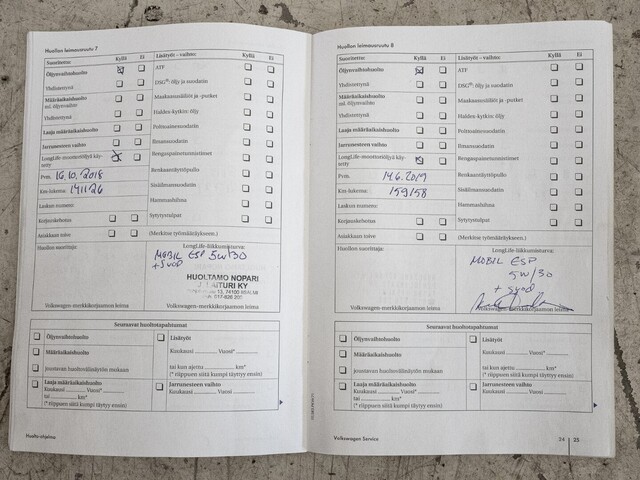 Huollon leimausruutu 7
Suoritettu: Kyllä Ei
Öljynvaihtohuolto
Yhdistettynä
Määräaikaishuolto
ml. öljynvaihto
Yhdistettynä
Laaja määräaikaishuolto
Jarrunesteen vaihto
LongLife-moottoriöljyä käy-
tetty
Pvm. 16.10.2018
Km-lukema: 141126
Laskun numero:
Korjauskehotus
Asiakkaan toive
Lisätyöt – vaihto: Kyllä Ei
ATF
DSG®: öljy ja suodatin
Maakaasusäiliöt ja -putket
Haldex-kytkin: öljy
Polttoainesuodatin
Ilmansuodatin
Rengaspainetunnistimet
Renkaantäyttöpullo
Sisäilmansuodatin
Hammashihna
Sytytystulpat
(Merkitse työmääräykseen.)
Huollon suorittaja:
LongLife-liikkumisturva:
MOBIL ESP 5W/30
+ SUOD
HUOLTAMO NOPARI
Volkswagen-merkkikorjaamon leima
Volkswagen-merkkikorjaamon leima
Seuraavat huoltotapahtumat
Öljynvaihtohuolto
Määräaikaishuolto
joustavan huoltovälinäytön mukaan
Laaja määräaikaishuolto
Kuukausi Vuosi*
tai km*
(* riippuen siitä kumpi täytyy ensin)
Lisätyöt
Kuukausi Vuosi*
tai kun ajettu km*
(* riippuen siitä kumpi täytyy ensin)
Jarrunesteen vaihto
Kuukausi Vuosi
Huolto-ohjelma
Huollon leimausruutu 8
Suoritettu: Kyllä Ei
Öljynvaihtohuolto
Yhdistettynä
Määräaikaishuolto
ml. öljynvaihto
Yhdistettynä
Laaja määräaikaishuolto
Jarrunesteen vaihto
LongLife-moottoriöljyä käy-
tetty
Pvm. 14.6.2019
Km-lukema: 159158
Laskun numero:
Korjauskehotus
Asiakkaan toive
Lisätyöt – vaihto: Kyllä Ei
ATF
DSG®: öljy ja suodatin
Maakaasusäiliöt ja -putket
Haldex-kytkin: öljy
Polttoainesuodatin
Ilmansuodatin
Rengaspainetunnistimet
Renkaantäyttöpullo
Sisäilmansuodatin
Hammashihna
Sytytystulpat
(Merkitse työmääräykseen.)
Huollon suorittaja:
LongLife-liikkumisturva:
MOBIL ESP
5W/30
+ suod
Volkswagen-merkkikorjaamon leima
Volkswagen-merkkikorjaamon leima
Seuraavat huoltotapahtumat
Öljynvaihtohuolto
Määräaikaishuolto
joustavan huoltovälinäytön mukaan
Laaja määräaikaishuolto
Kuukausi Vuosi*
tai km*
(* riippuen siitä kumpi täytyy ensin)
Lisätyöt
Kuukausi Vuosi*
tai kun ajettu km*
(* riippuen siitä kumpi täytyy ensin)
Jarrunesteen vaihto
Kuukausi Vuosi
Volkswagen Service
24 25